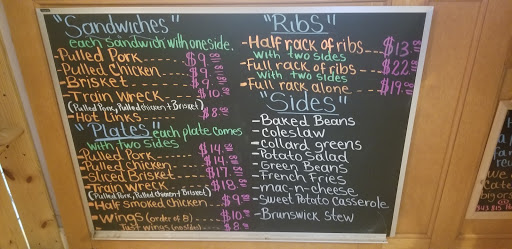 "Sandwiches"
each sandwich with one side.
-Pulled Pork---$9.
-Pulled Chicken---$9.
-Brisket---$9.
-Train Wreck---$10.
(Pulled Pork, Pulled Chicken + Brisket)
-Hot Links---$8.
"Plates" each plate comes
with two sides
-Pulled Pork---$14.
-Pulled Chicken---$14.
-Sliced Brisket---$17.
-Train wreck---$18.
(Pulled Pork, Pulled Chicken + Brisket)
-Half Smoked chicken---$9.
-wings (order of 8)---$10.
Just wings (one side)---$8.
"Ribs"
-Half rack of ribs---$13.
with two sides
-Full rack of ribs---$22.
with two sides
-Full rack alone---$19.
"Sides"
-Baked Beans
-coleslaw
-collard greens
-Potato Salad
-Green Beans
-French Fries
-mac-n-cheese
-Sweet Potato Casserole
-Brunswick Stew